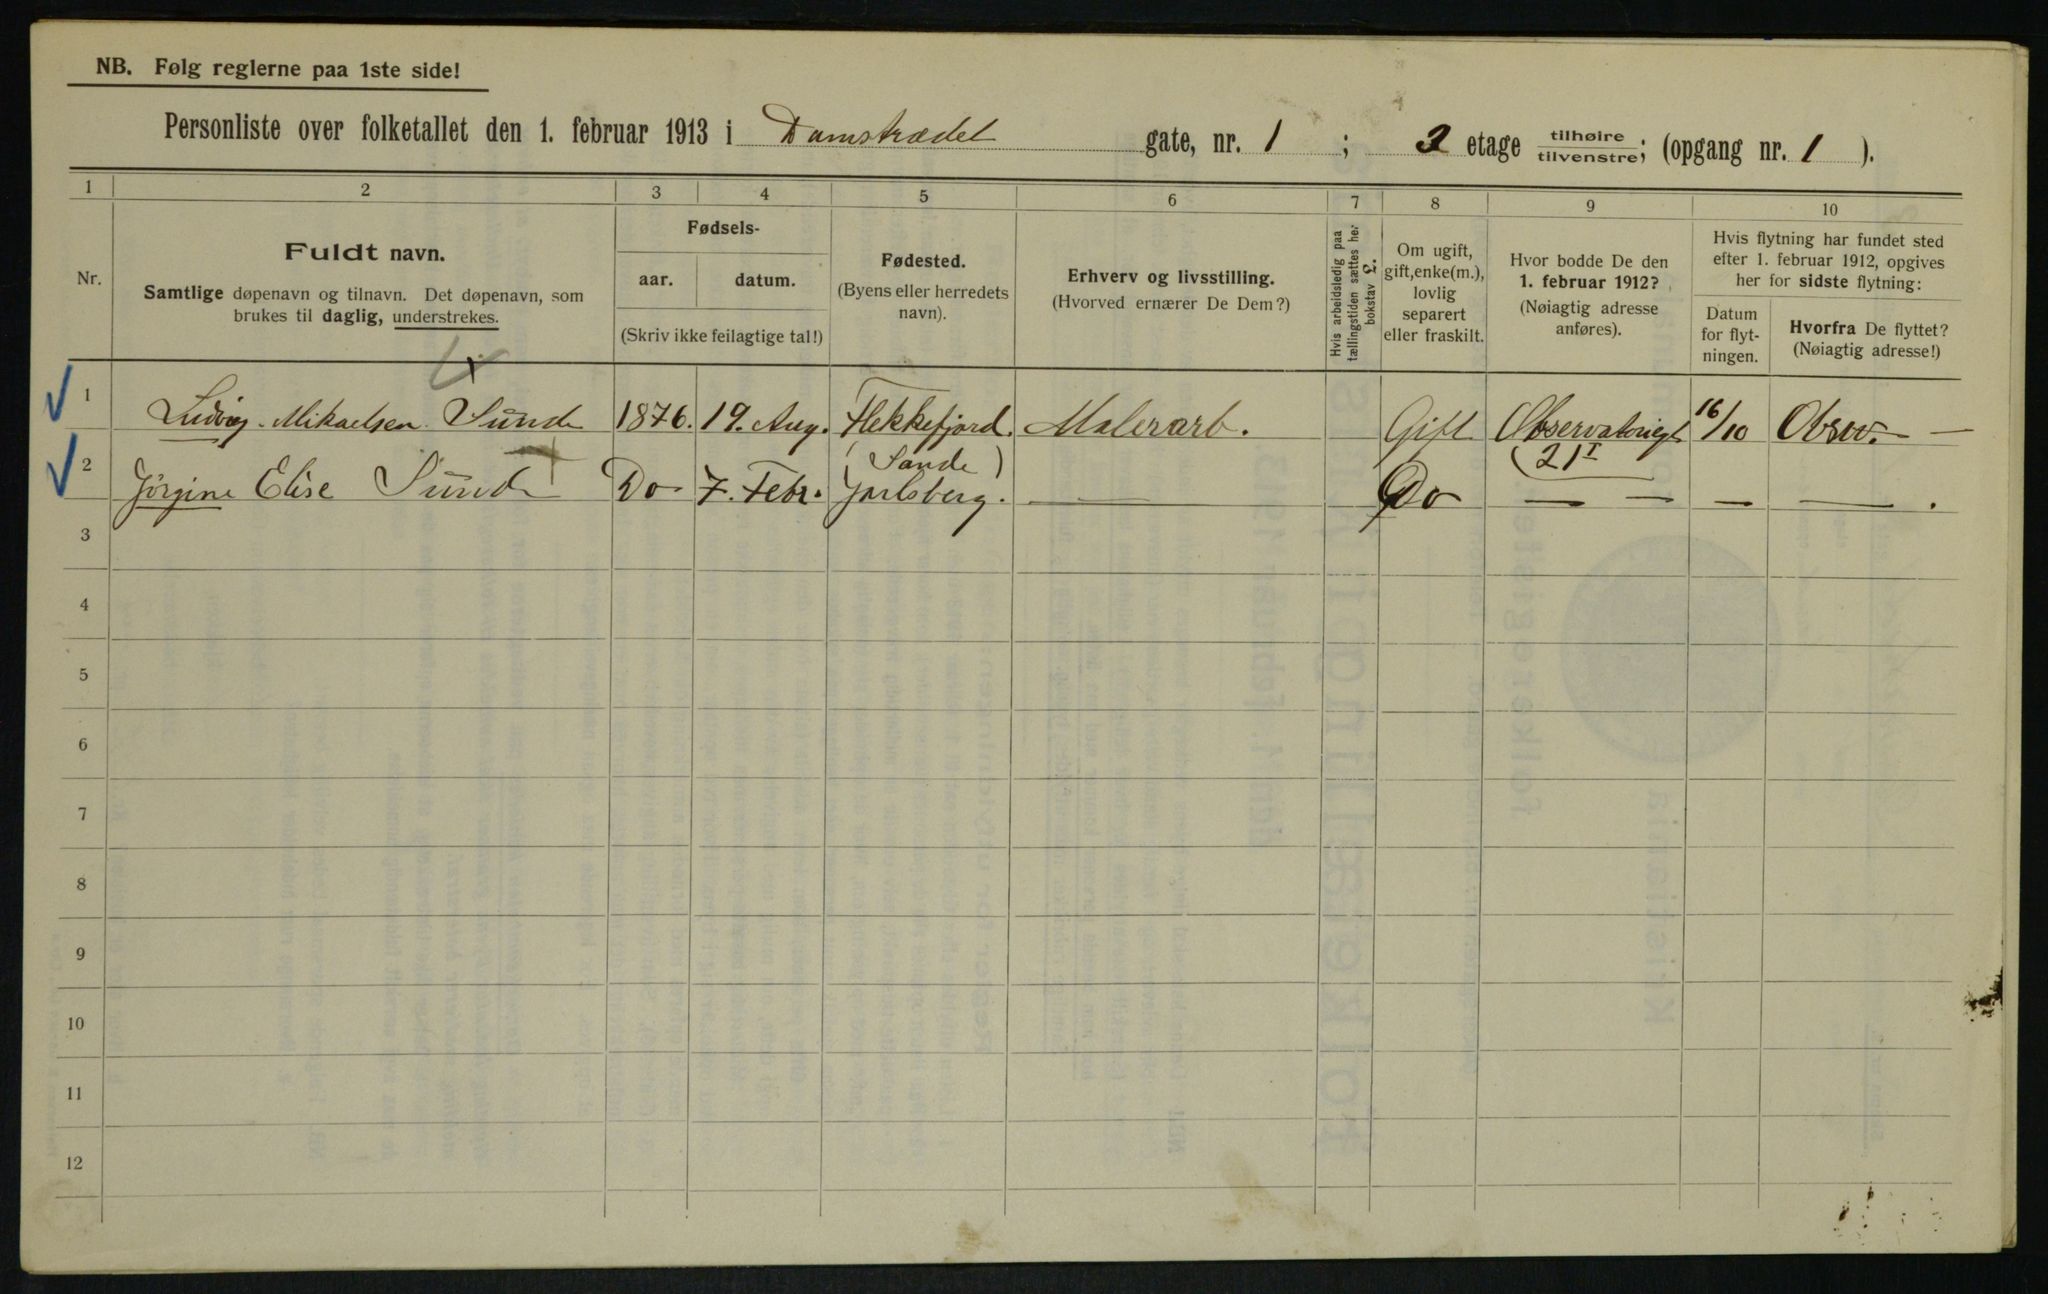 NB. Følg reglerne paa 1ste side!
Personliste over folketallet den 1. februar 1913 i Damstrædet gate, nr. 1 ; 2 etage tilhøire tilvenstre; (opgang nr. 1 ).
1 2 3 4 5 6 7 8 9 10
Nr.
Fuldt navn.
Samtlige døpenavn og tilnavn. Det døpenavn, som
brukes til daglig, understrekes.
Fødsels-
aar. datum.
(Skriv ikke feilagtige tal!)
Fødested.
(Byens eller herredets
navn).
Erhverv og livsstilling.
(Hvorved ernærer De Dem?)
Hvis arbeidsledig paa
tællingstiden sættes her
bokstav L.
Om ugift,
gift, enke(m.),
lovlig
separert
eller fraskilt.
Hvor bodde De den
1. februar 1912?
(Nøiagtig adresse
anføres).
Hvis flytning har fundet sted
efter 1. februar 1912, opgives
her for sidste flytning:
Datum
for flyt-
ningen.
Hvorfra De flyttet?
(Nøiagtig adresse!)
1 Ludvig Mikaelsen Sunde 1876. 19. Aug. Flekkefjord. Malerarb. Gift Observatorigt 16/10 Observ. —
(Sande) 21 I
2 Jörgine Elise Sunde Do 7. Febr. Jarlsberg. — Do — — — — .
3
4
5
6
7
8
9
10
11
12